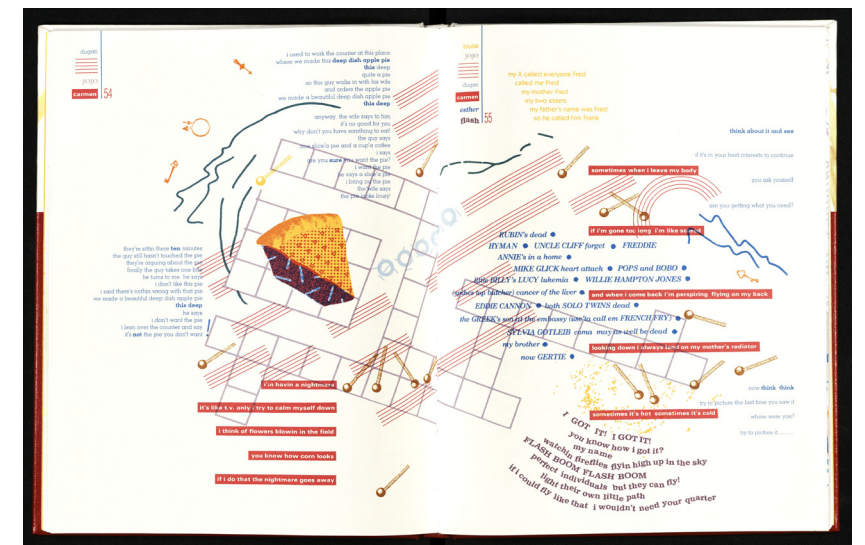 dugan
carmen 54
i used to work the counter at this place
where we made this deep dish apple pie
this deep
quite a pie
so this guy walks in with his wife
and orders the apple pie
we made a beautiful deep dish apple pie
this deep
anyway the wife says to him
it's no good for you
why don't you have somthing to eat!
the guy says
one slice'a pie and a cup'a coffee
i says
are you sure you want the pie?
i want the pie
he says a slice'a pie
i bring on the pie
the wife says
the pie looks lousy!
they're sittin there ten minutes
the guy still hasn't touched the pie
they're arguing about the
finally the guy takes one bite
he turns to me he says
i don't like this pie
i said there's nothin wrong with that pie
we made a beautiful deep dish apple pie
this deep
he says
i don't want the pie
i lean over the counter and say
it's not the pie you don't want
i'm havin a nightmare
it's like t.v. only i try to calm myself down
i think of flowers blowin in the field
you know how corn looks
if i do that the nightmare goes away
louise
dugan
carmen
esther
flash 55
my X called everyone Fred
called me Fred
my mother Fred
my two sisters
my father's name was Fred
so he called him Frank
think about it and see
if it's in your best interests to continue
you ask yourself
are you getting what you need?
sometimes when i leave my body
if i'm gone too long i'm like
and when i come back i'm perspiring flying on my back
looking down i always land on my mother's radiator
sometimes it's hot sometimes it's cold
RUBIN's dead
HYMAN UNCLE CLIFF forget FREDDIE
ANNIE's in a home
MIKE GLICK heart attack POPS and BOBO
little BILLY's LUCY lukemia WILLIE HAMPTON JONES
cancer of the liver
EDDIE CANNON both SOLO TWINS dead
the GREEK's son at the embassy (use'ta call em FRENCH FRY)
SYLVIA GOTLEIB coma may as well be dead
my brother
now GERTIE
now think think
try to picture the last time you saw it
where were you?
try to picture it..........
I GOT IT! I GOT IT!
you know how i got it?
my name
watchin fireflies flyin high up in the sky
FLASH BOOM FLASH BOOM
perfect individuals but they can fly!
light their own little path
if i could fly like that i wouldn't need your quarter